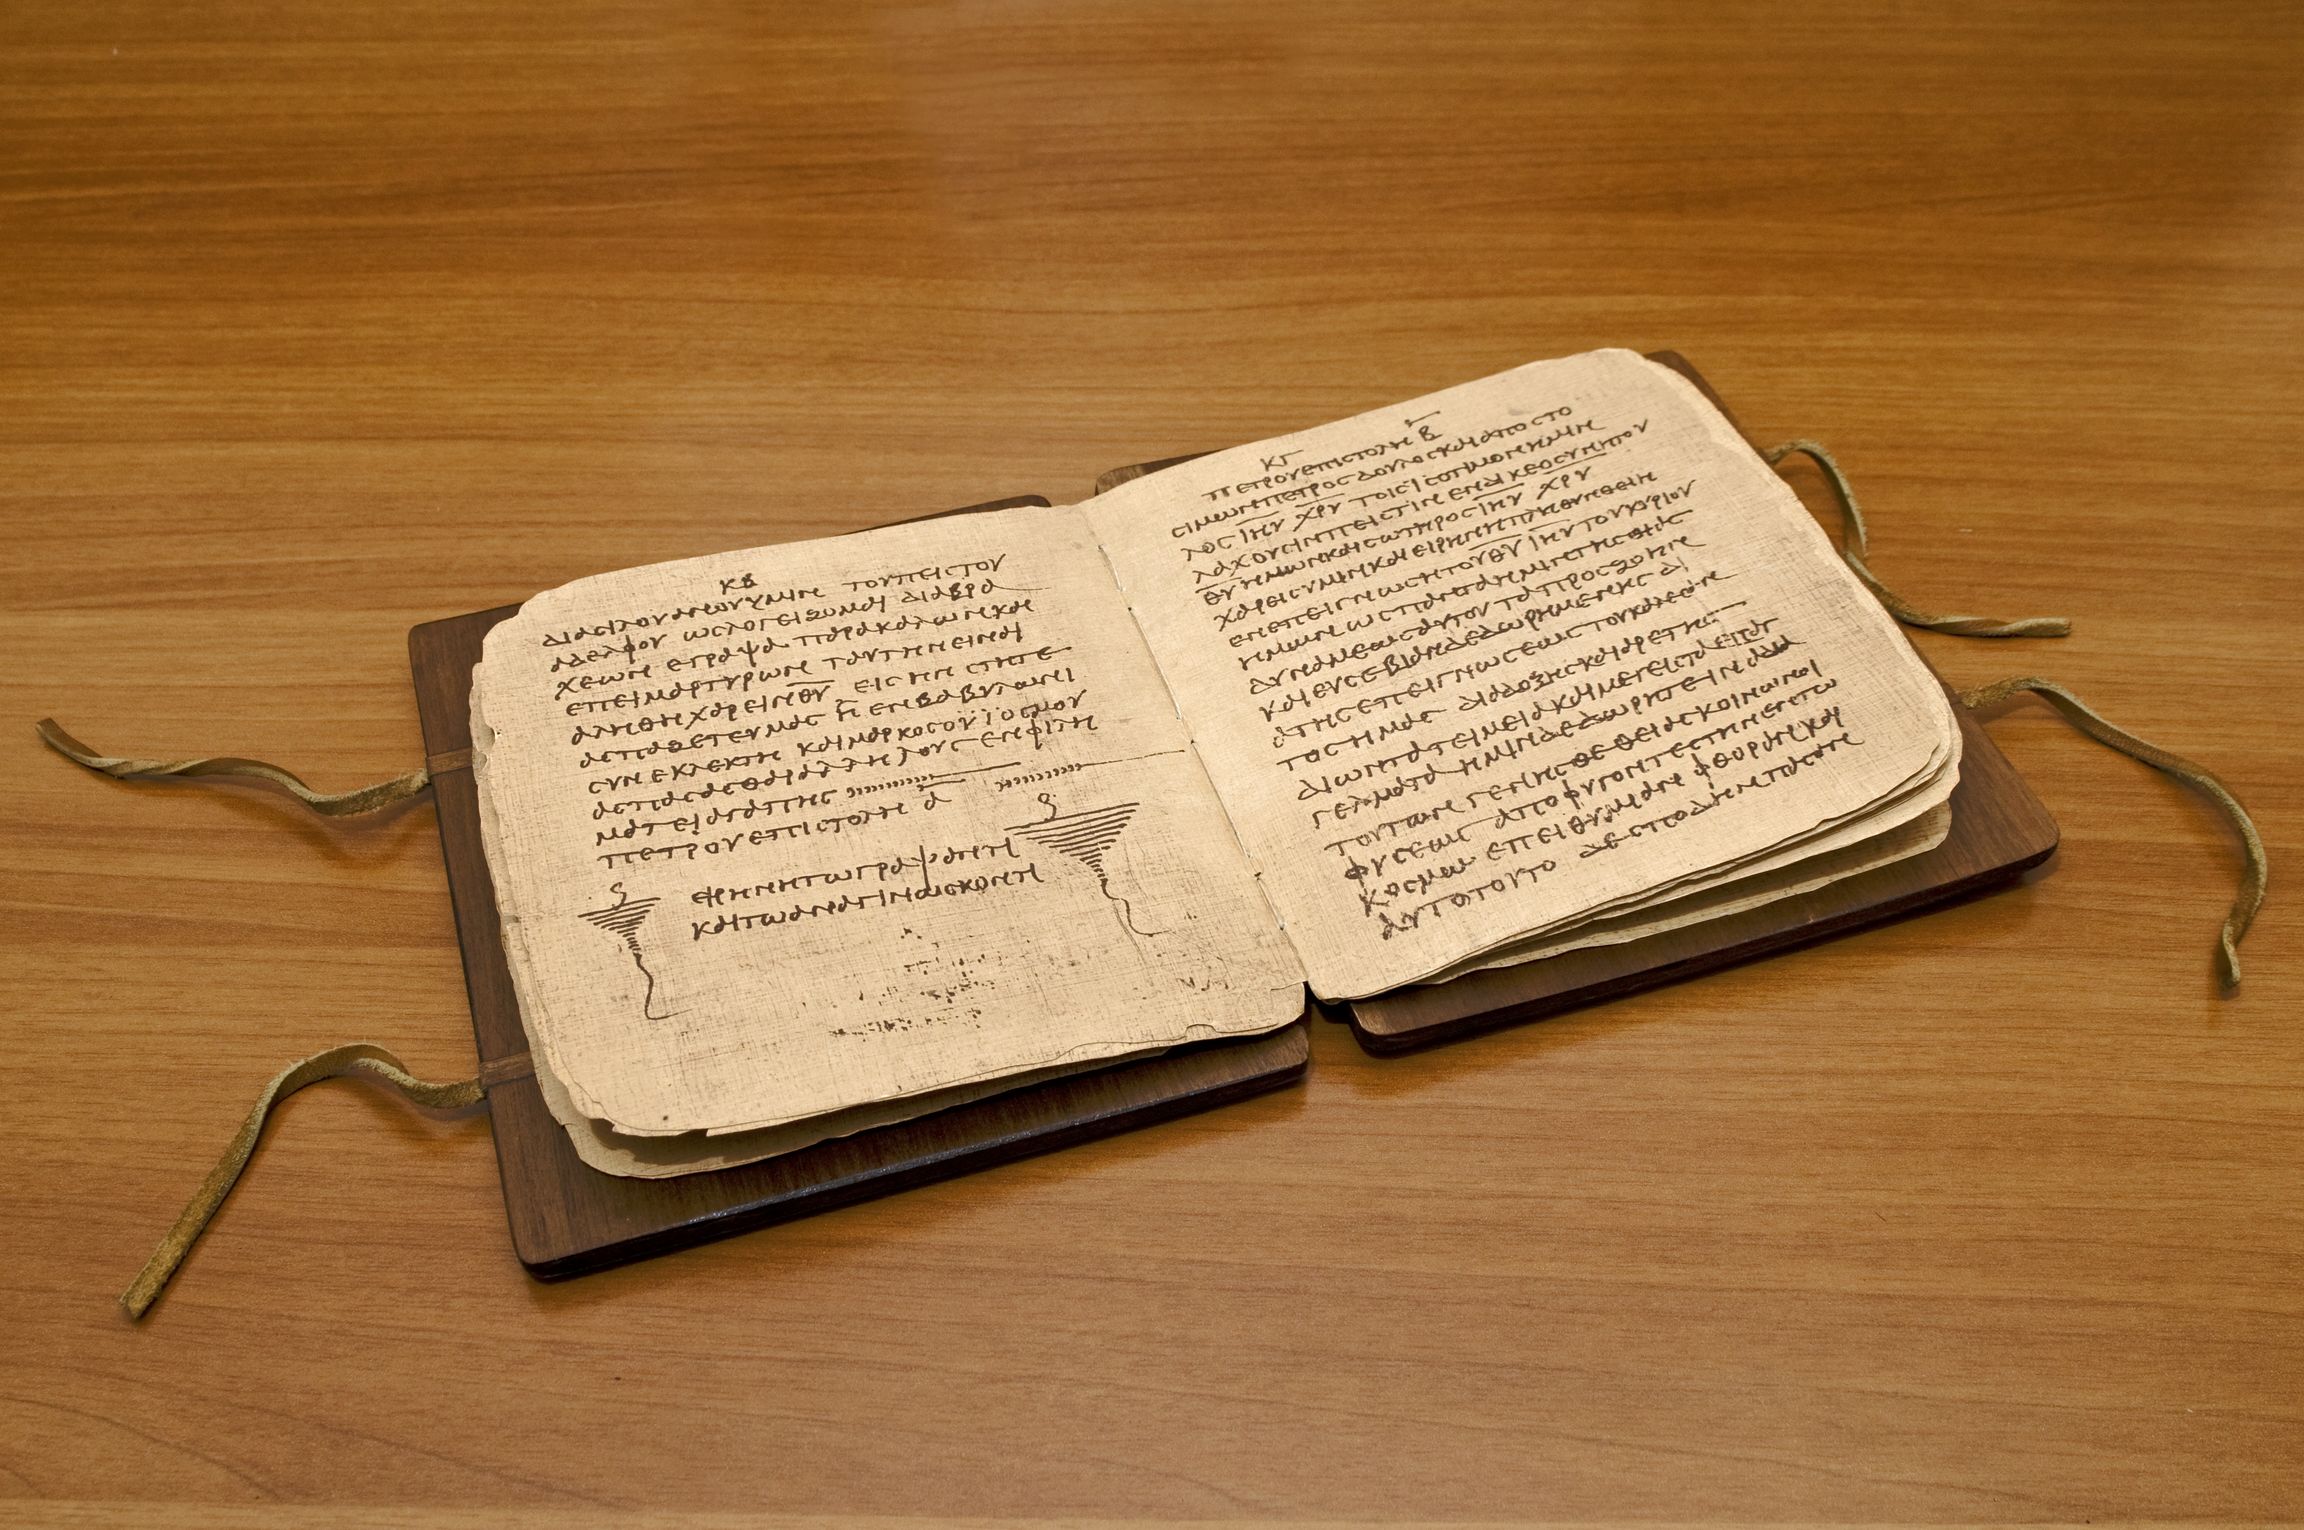 κβ
δια ϲιλουανου υμιν του πειϲτου
αδελφου ωϲ λογειζομαι δια βρα
χεων εγραψα παρακαλων και
επειμαρτυρων ταυτην ειναι
αληθη χαρειν θ̅υ̅ ειϲ ην ϲτητε
αϲπαζετε υμαϲ η εν βαβυλωνι
ϲυνεκλεκτη και μαρκοϲ ο υϊοϲ μου
αϲπαϲαϲθαι αλληλουϲ εν φιλη
ματει αγαπηϲ
πετρου επιϲτολη α̅
ειρηνη τω γραψαντι
και τω αναγινωϲκοντι
κγ
πετρου επιϲτολη β̅
ϲιμεων πετροϲ δουλοϲ και αποϲτο
λοϲ ι̅η̅υ̅ χ̅ρ̅υ̅ τοιϲ ιϲοτιμον ημιν
λαχουϲιν πειϲτιν εν δικεοϲυνη του
θ̅υ̅ ημων και ϲωτηροϲ ι̅η̅υ̅ χ̅ρ̅υ̅
χαρειϲ υμιν και ειρηνη πληθυνθειη
εν επειγνωϲη του θ̅υ̅ ι̅η̅υ̅ του κυριου
ημων ωϲ παντα ημιν τηϲ θιαϲ
δυναμεωϲ αυτου τα προϲ ζοην
και ευϲεβιαν δεδωρημενηϲ δι
α τηϲ επειγνωϲεωϲ του καλεϲαν
τοϲ ημαϲ δια δοξηϲ και αρετηϲ
δι ων τα τειμεια και μεγειϲτα επαγ
γελματα ημιν δεδωρητε ινα δια
τουτων γενηϲθε θειαϲ κοινωνοι
φυϲεωϲ αποφυγοντεϲ την εν τω
κοϲμω επειθυμιαν φθοραν και
αυτο τουτο δε ϲποδην παϲαν